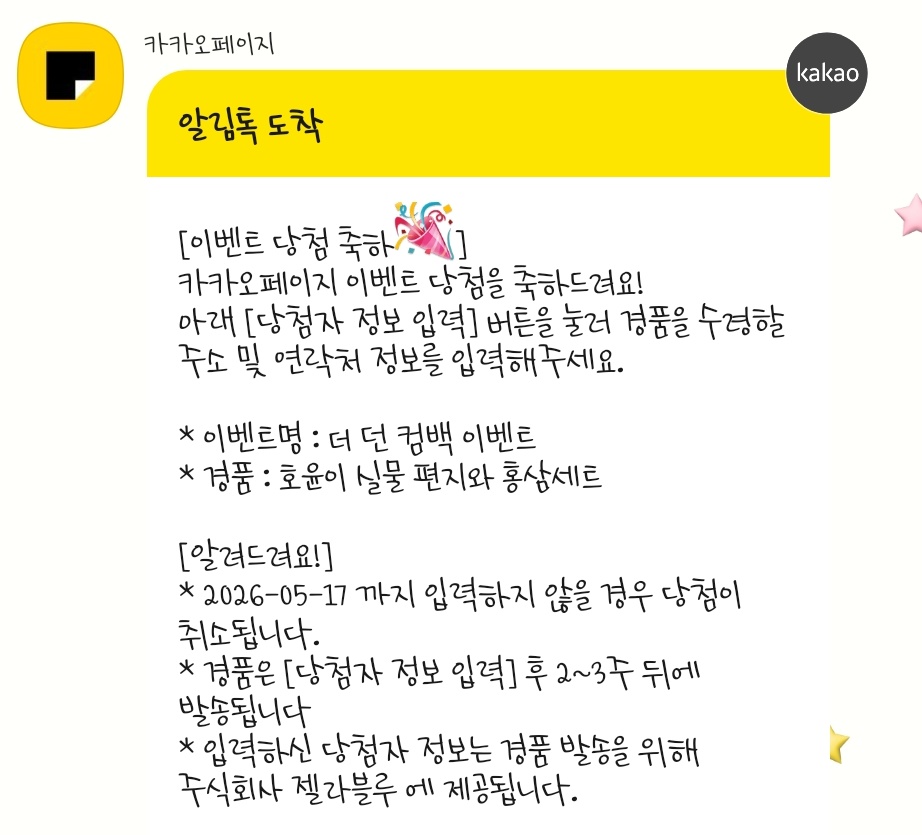 카카오페이지
kakao
알림톡 도착
[이벤트 당첨 축하🎉]
카카오페이지 이벤트 당첨을 축하드려요!
아래 [당첨자 정보 입력] 버튼을 눌러 경품을 수령할
주소 및 연락처 정보를 입력해주세요.
* 이벤트명 : 더 던 컴백 이벤트
* 경품 : 호윤이 실물 편지와 홍삼세트
[알려드려요!]
* 2026-05-17 까지 입력하지 않을 경우 당첨이
취소됩니다.
* 경품은 [당첨자 정보 입력] 후 2~3주 뒤에
발송됩니다
* 입력하신 당첨자 정보는 경품 발송을 위해
주식회사 젤라블루 에 제공됩니다.